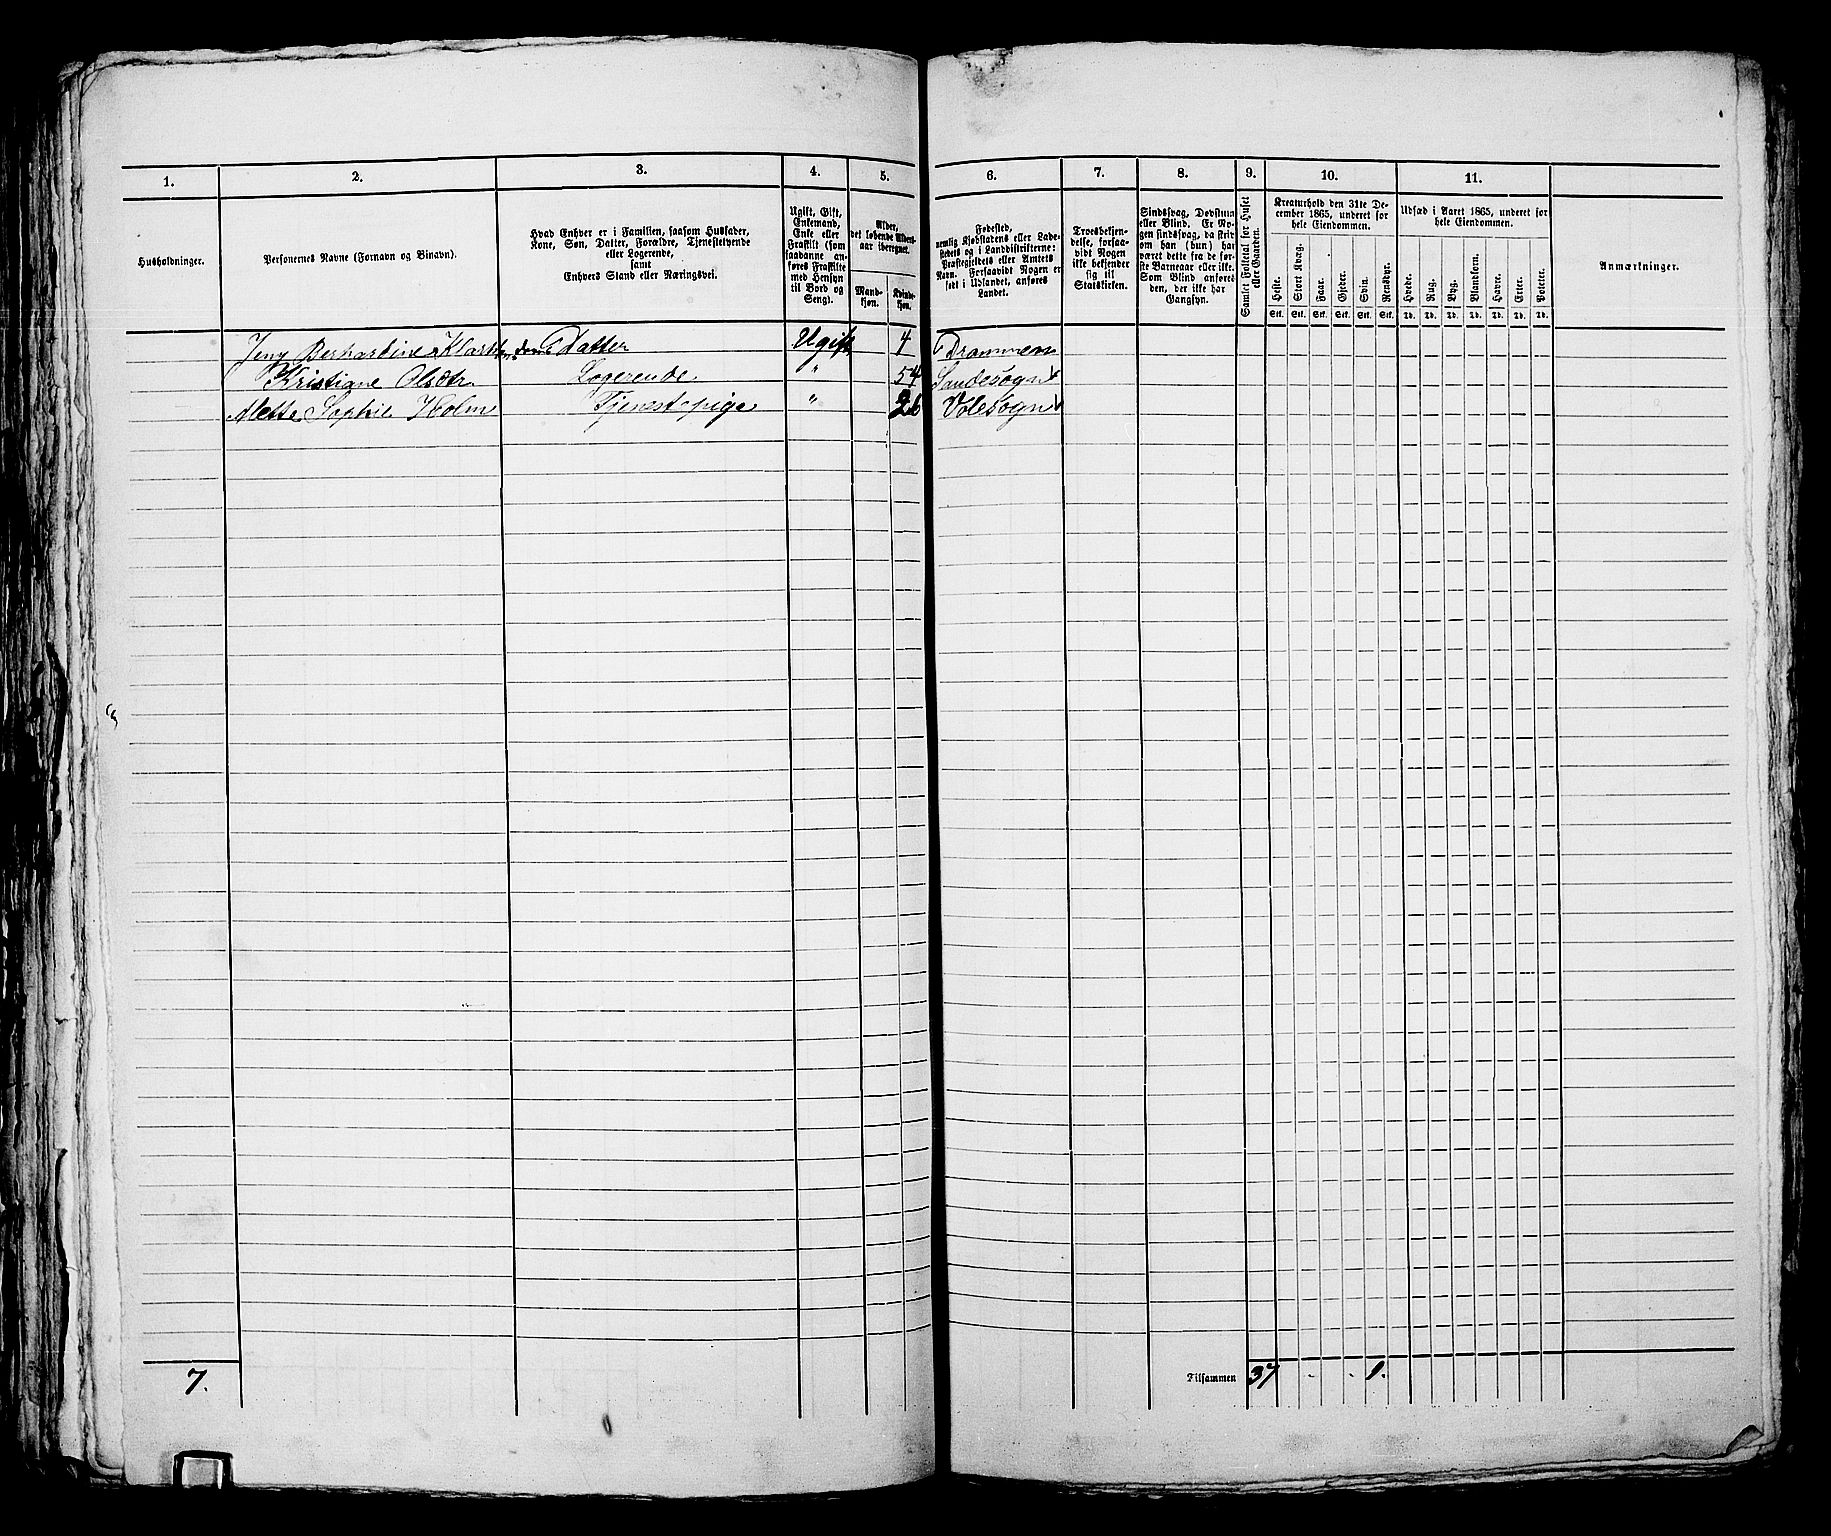 1.
2.
3.
4.
5.
6.
7.
8.
9.
10.
11.
Husholdninger.
Personernes Navne (Fornavn og Binavn).
Hvad Enhver er i Familien, saasom Husfader,
Kone, Søn, Datter, Forældre, Tjenestetyende
eller Logerende,
samt
Enhvers Stand eller Næringsvei.
Ugift, Gift,
Enkemand,
Enke eller
Fraskilt (som
saadanne an-
føres Fraskilte
med Hensyn
til Bord og
Seng).
Alder,
det løbende Alders-
aar iberegnet.
Mand-
kjøn.
Kvinde-
kjøn.
Fødested,
nemlig Kjøbstadens eller Lade-
stedets og i Landdistrikterne:
Præstegjeldets eller Amtets
Navn. Forsaavidt Nogen er
født i Udlandet, anføres
Landet.
Troesbekjen-
delse, forsaa-
vidt Nogen
ikke bekjender
sig til
Statskirken.
Sindssvag, Døvstum
eller Blind. Er No-
gen sindssvag, da skri-
ves om han (hun) har
været dette fra de før-
ste Barneaar eller ikke.
Som Blind anføres
den, der ikke har
Gangsyn.
Samlet Folketal for Huset
eller Gaarden.
Kreaturhold den 31te De-
cember 1865, underet for
hele Eiendommen.
Heste.
Stort Kvæg.
Faar.
Gjeder.
Svin.
Rensdyr.
Stk. Stk. Stk. Stk. Stk. Stk.
Udsæd i Aaret 1865, underet for
hele Eiendommen.
Hvede.
Rug.
Byg.
Blandkorn.
Havre.
Erter.
Poteter.
Td. Td. Td. Td. Td. Td. Td.
Anmærkninger.
Jeny Berhardine Datter Ugift 4 Drammen
Kristiane Olsdtr. Logerende " 54 Sandesogn
Mette Sophie Holm Tjenestepige " 26 Volesogn
7.
Tilsammen 37 . . 1.